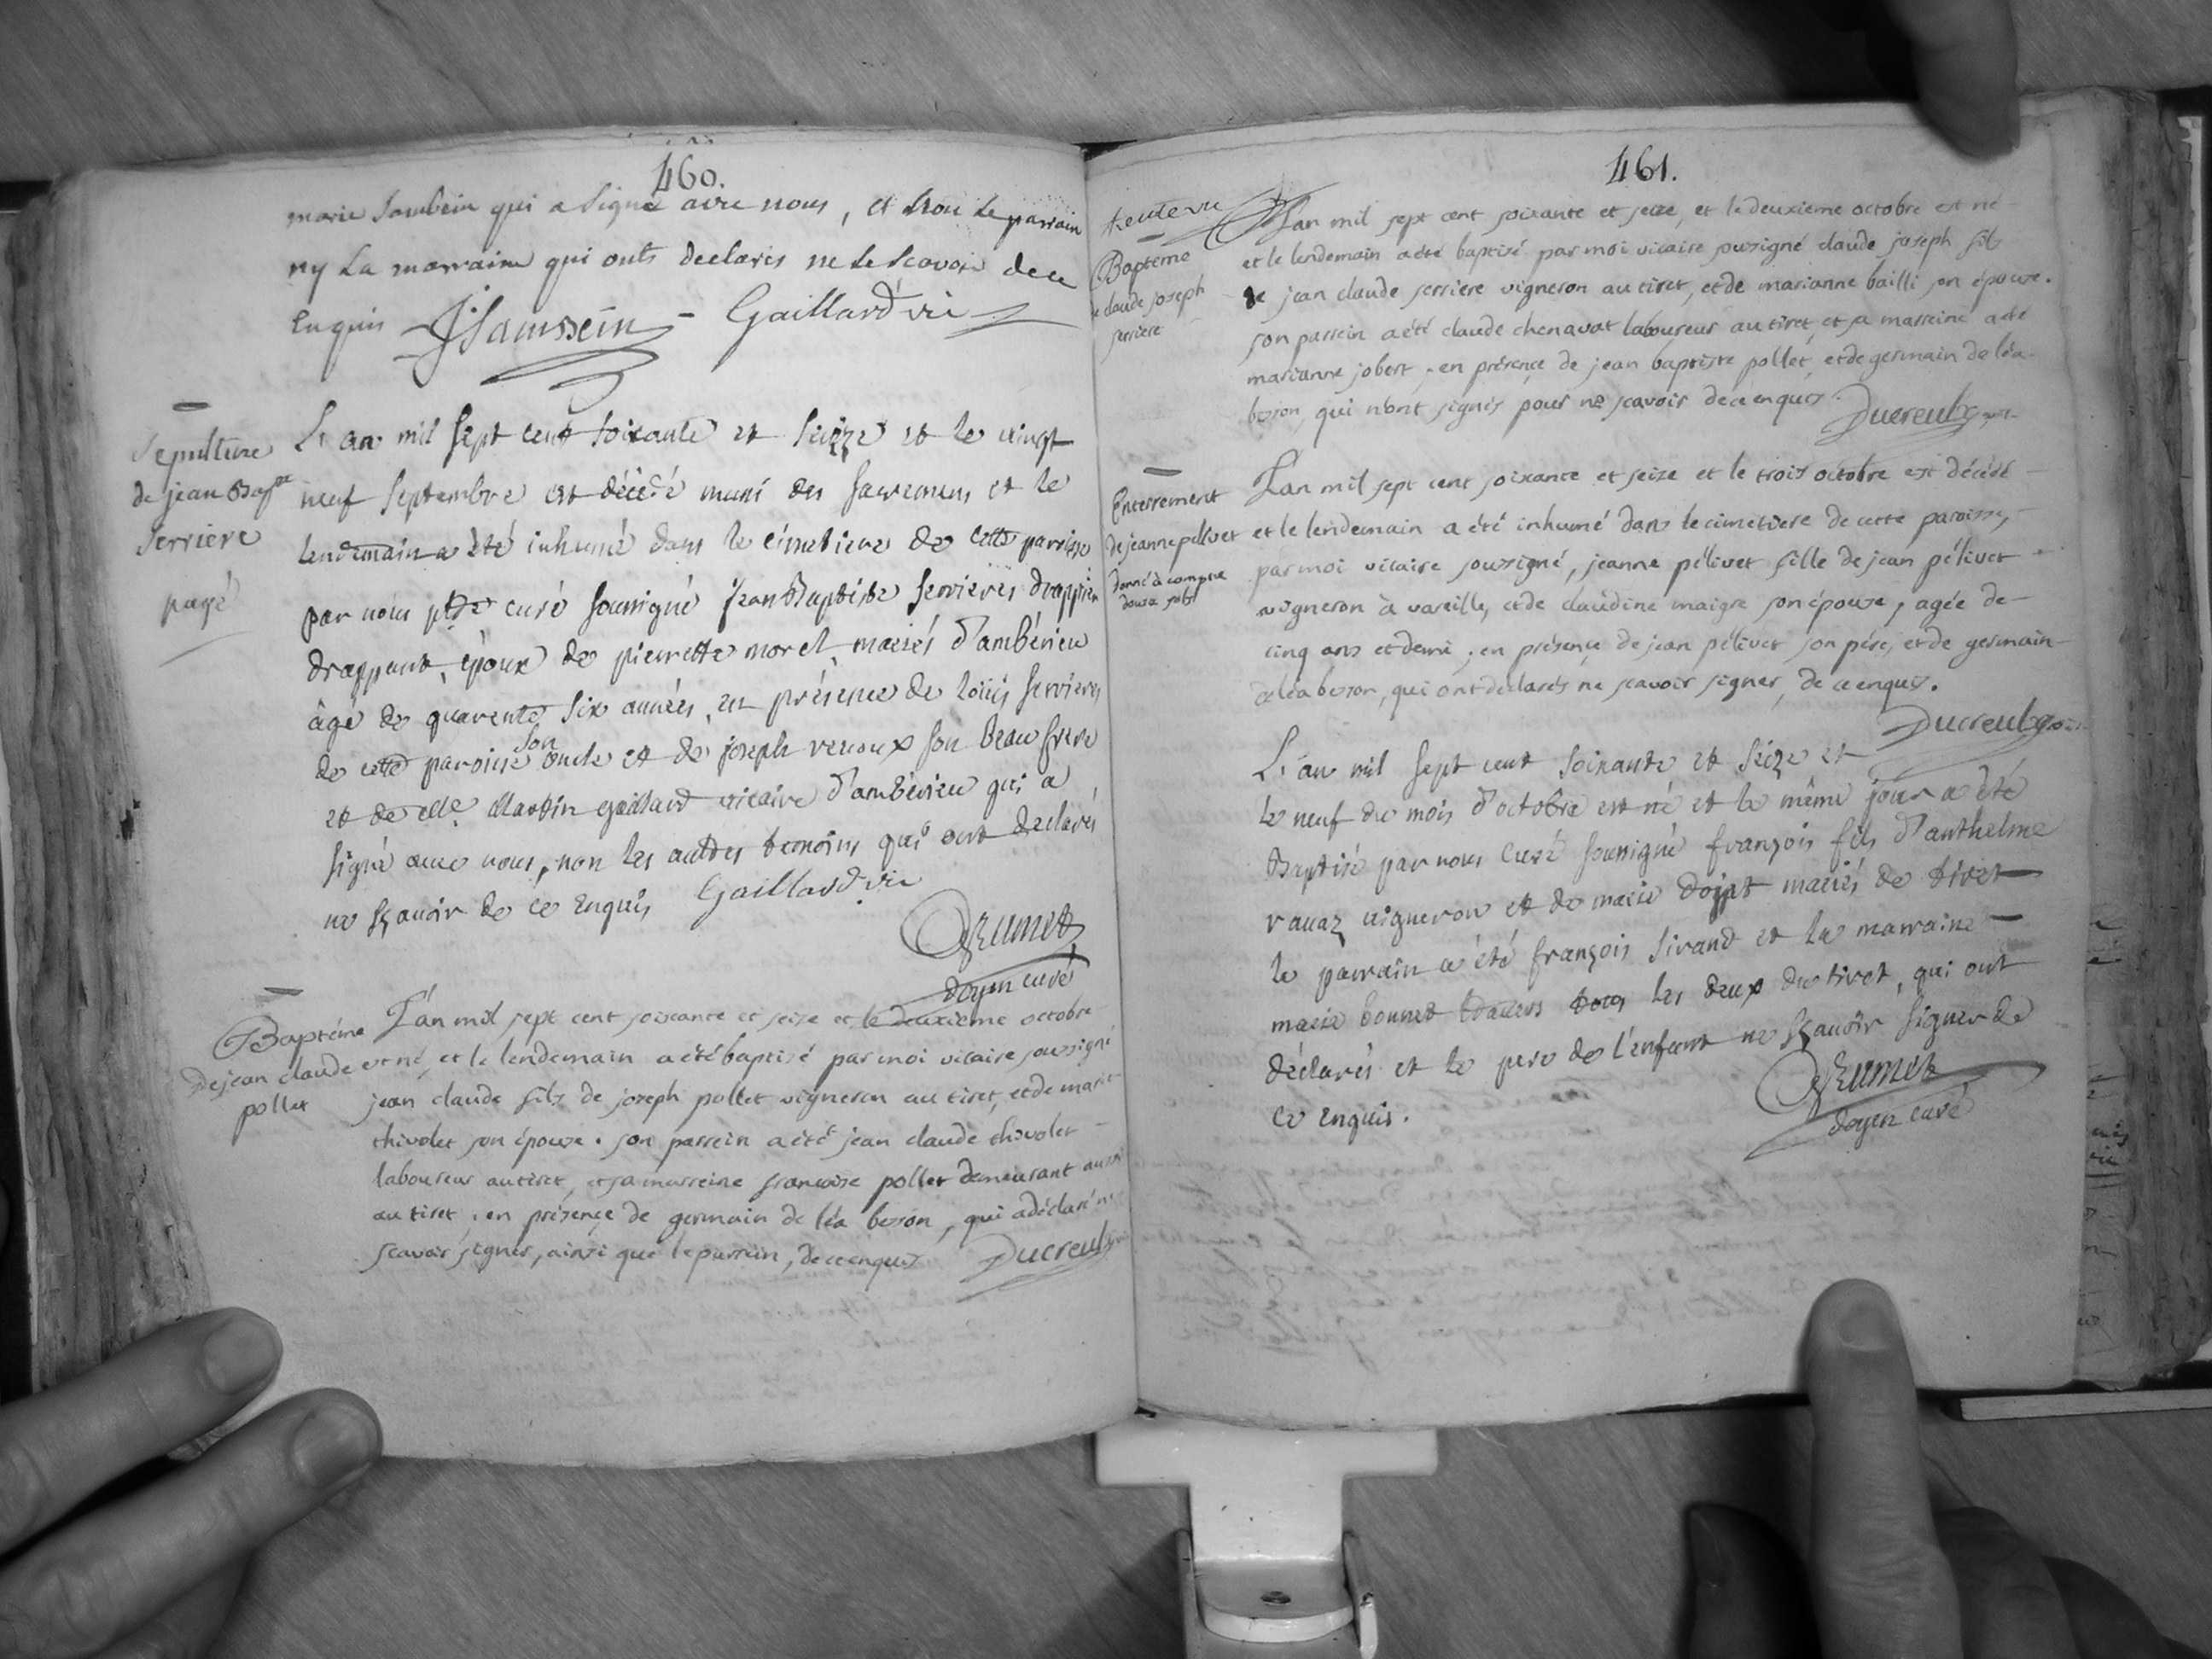 460.
marie qui a signé avec nous, et non le parrain
ny la marraine qui onts declarés ne le scavoir de ce
enquis Gaillard vic
Sepulture
de jean Bapte
Serriere
payé
L'an mil sept cent soixante et seizze et le vingt
neuf septembre est décédé muni des sacremens et le
lendemain a été inhumé dans le cimetiere de cette paroisse
par nous ptre curé soussigné jean Baptiste serrieres drappier
drappant, époux de pierrette morel, mariés d'ambérieu
âgé de quarente six années, en présence de loüis serrieres
de cette paroisse son oncle et de joseph venoux son beau frere
et de Martin gaillard vicaire d'ambérieu qui a
signé avec nous, non les autres temoins qui ont declarés
ne sçauoir de ce enquis Gaillard vic
doyen curé
Baptéme
de jean claude
pollet
L'an mil sept cent soixante et seize et le deuxieme octobre
est né, et le lendemain a été baptisé par moi vicaire sousigné
jean claude fils de joseph pollet vigneron au tiret, et de marie
thivolet son épouse. son parrein a été jean claude thivolet
laboureur au tiret, et sa marreine francoise pollet demeurant aussi
au tiret, en présence de germain de léa besson, qui a déclaré ne
scavoir signer, ainsi que le parrein, de ce enquis Ducreulx
461.
Baptéme
de claude joseph
serriere
L'an mil sept cent soixante et seize, et le deuxieme octobre est né
et le lendemain a été baptisé par moi vicaire sousigné claude joseph fils
de jean claude serriere vigneron au tiret, et de marianne bailli son épouse.
son parrein a été claude chenavat laboureur au tiret, et sa marreine a été
marianne jobert, en présence de jean baptiste pollet, et de germain de léa
besson, qui n'ont signés pour ne scavoir de ce enquis. Ducreulx
Enterrement
de jeanne pelivet
donné à compte
douze sols
L'an mil sept cent soixante et seize et le trois octobre est décédé
et le lendemain a été inhumé dans le cimetiere de cette paroisse,
par moi vicaire sousigné, jeanne pélivet fille de jean pélivet
vigneron à vareille, et de claudine maigre son épouse, agée de
cinq ans et demi, en présence de jean pélivet son pére, et de germain
de léa besson, qui ont declarés ne scavoir signer, de ce enquis.
Ducreulx
L'an mil sept cent soixante et seize et
le neuf du mois d'octobre est né et le même jour a été
Baptisé par nous curé soussigné françois fils d'anthelme
ravaz vigneron et de marie mariés de tiret
le parrain a été françois sirand et la marraine
marie bonnet tous les deux du tiret, qui ont
déclarés et le pere de l'enfant ne sçauoir signer de
ce enquis.
doyen curé